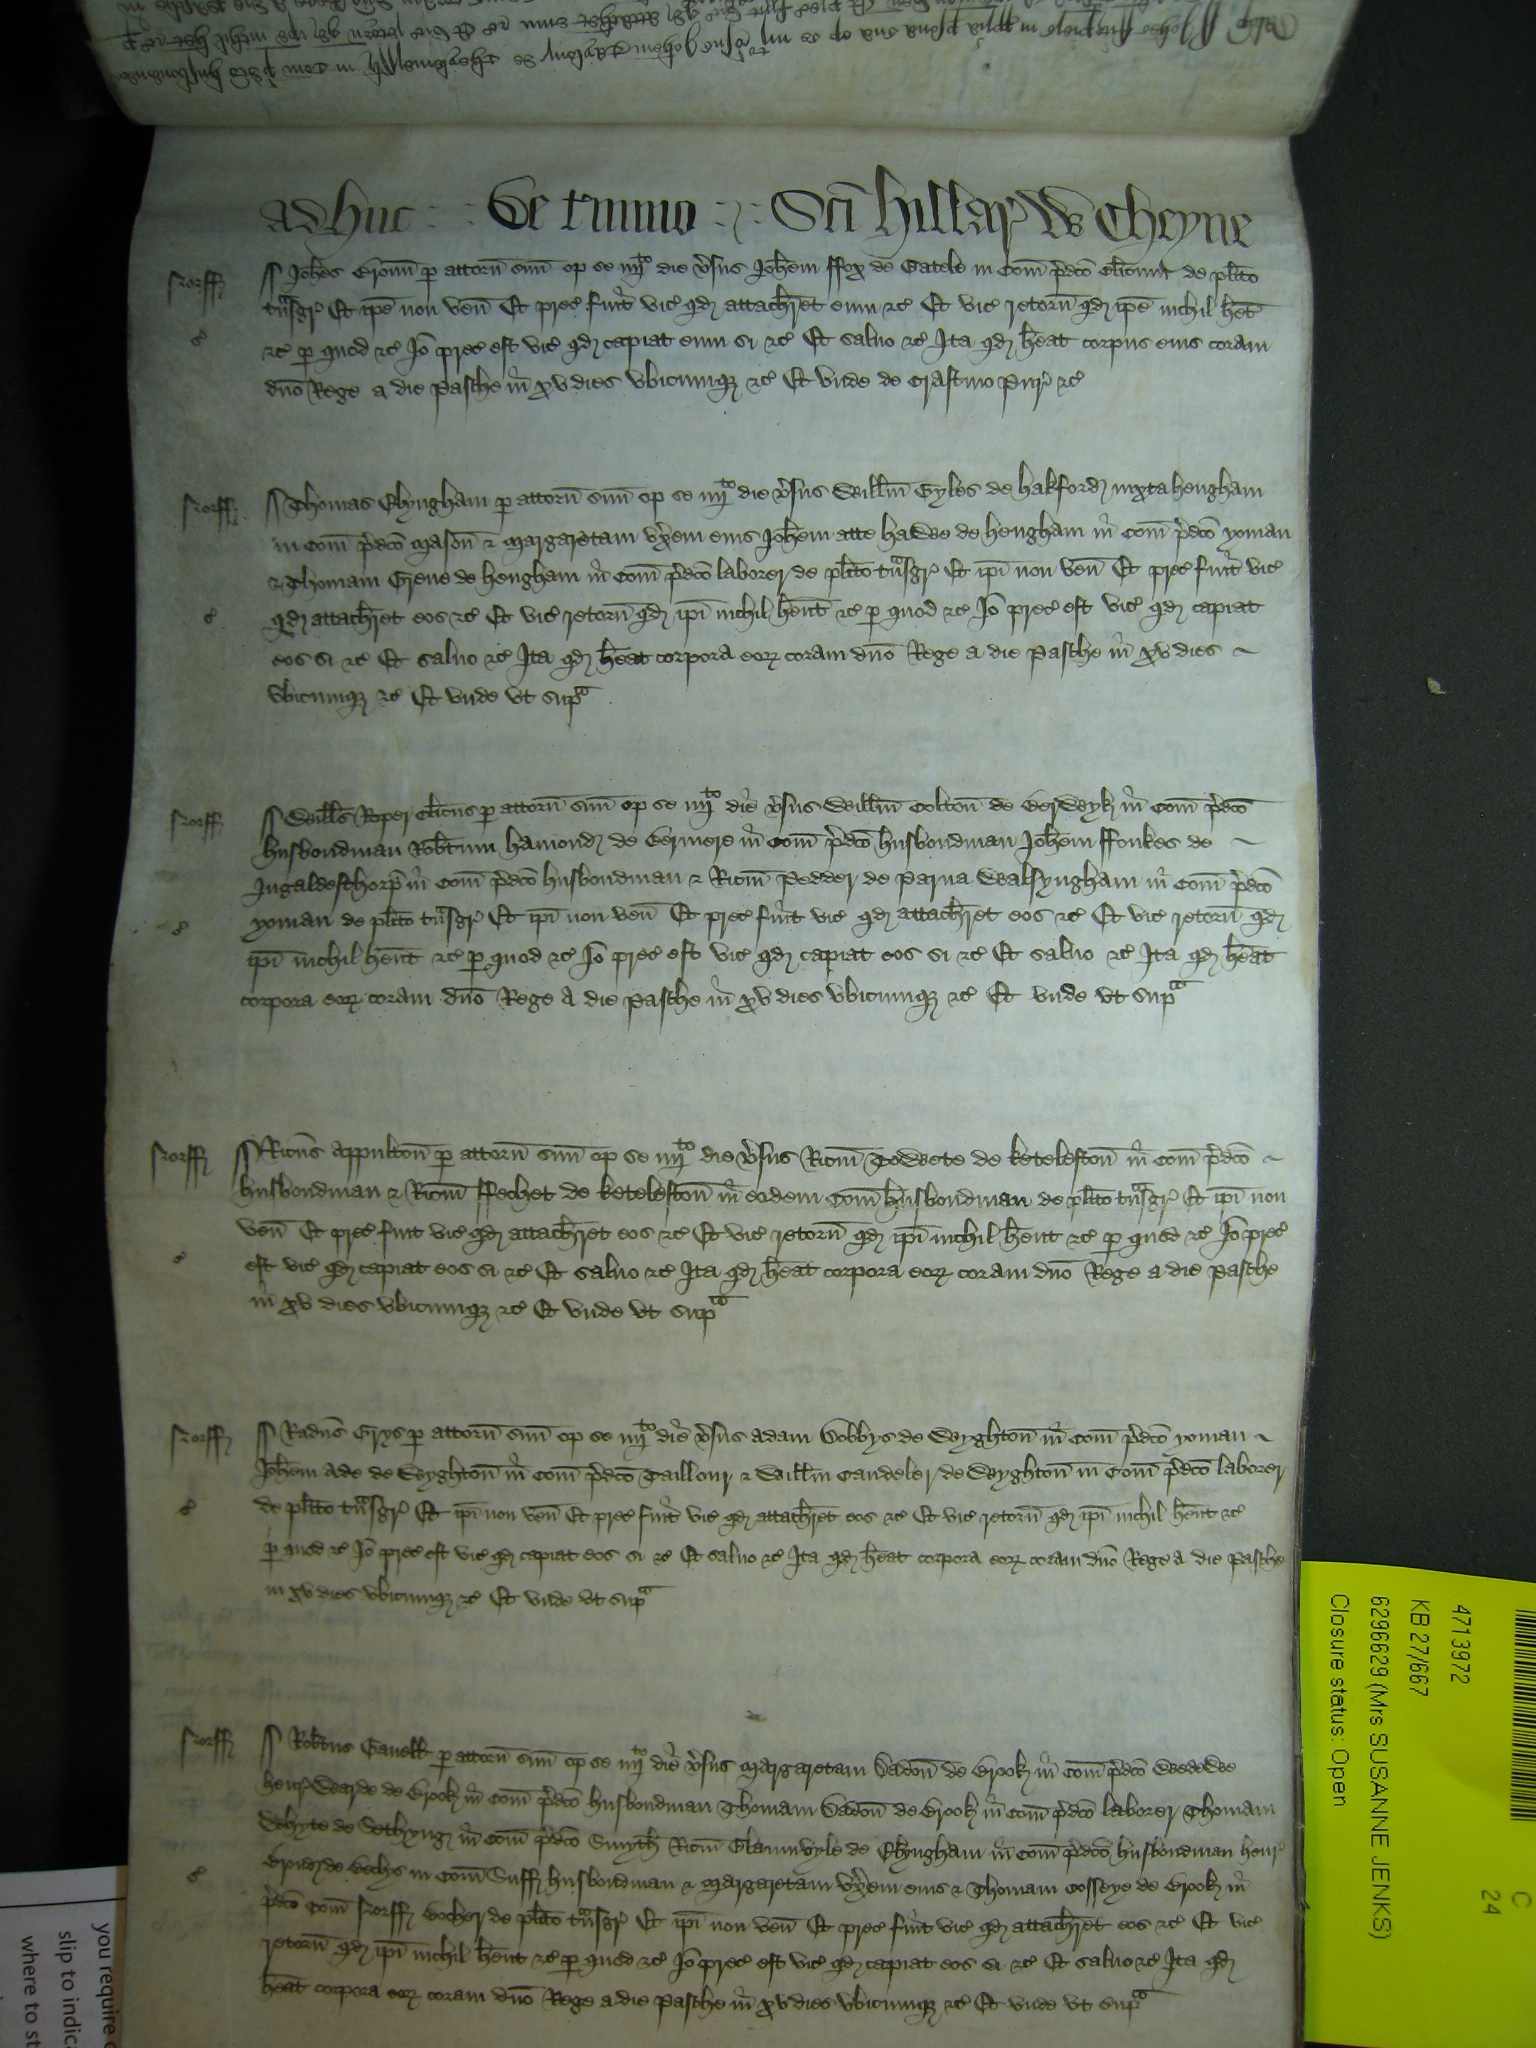 Adhuc De Termino Sci Hillar Wt Cheyne
Norff Johes Bronn p attorn suu op se iiijto die vsus Johem ffox de Gatele in Com pdco Clicum de plito
tnsgr Et ipe non ven Et prec fuit vic qd attachret eum &c Et vic retorn qd ipe nichil het
&c p quod &c Jo prec est vic qd capiat eum si &c Et saluo &c Jta qd heat corpus eius coram
dno Rege a die Pasche in xv dies vbicumq &c Et vnde de Crastino Pur &c
Norff Thomas Elyngham p attorn suu op se iiijto die vsus Willm Gyles de hakford iuxta hengham
in Com pdco Mason & Margaretam vxem eius Johem atte hawe de hengham in Com pdco yoman
& Thomam Grene de hengham in Com pdco laborer de plito tnsgr Et ipi non ven Et prec fuit vic
qd attachret eos &c Et vic retorn qd ipi nichil hent &c p quod &c Jo prec est vic qd capiat
eos si &c Et saluo &c Jta qd heat corpora eor coram dno Rege a die Pasche in xv dies
vbicumq &c Et vnde vt supa
Norff Wills Roper Clicus p attorn suu op se iiijto die vsus Willm Colton de Berwyk in Com pdco
husbondman Robtum hamond de Bermere in Com pdco husbondman Johem ffoukes de
Jngaldesthorp in Com pdco husbondman & Ricm Pedder de Parua Walsyngham in Com pdco
yoman de plito tnsgr Et ipi non ven Et prec fuit vic qd attachret eos &c Et vic retorn qd
ipi nichil hent &c p quod &c Jo prec est vic qd capiat eos si &c Et saluo &c Jta qd heat
corpora eor coram dno Rege a die Pasche in xv dies vbicumq &c Et vnde vt supa
Norff Ricus Appulton p attorn suu op se iiijto die vsus Ricm Towete de keteleston in Com pdco
husbondman & Ricm ffechet de keteleston in eodem Com husbondman de plito tnsgr Et ipi non
ven Et prec fuit vic qd attachret eos &c Et vic retorn qd ipi nichil hent &c p quod &c Jo prec
est vic qd capiat eos si &c Et saluo &c Jta qd heat corpora eor coram dno Rege a die Pasche
in xv dies vbicumq &c Et vnde vt supa
Norff Radus Grys p attorn suu op se iiijto die vsus Adam Bobbys de Wyghton in Com pdco yoman
Johem Ade de Wyghton in Com pdco Taillour & Willm Candeler de Wyghton in Com pdco laborer
de plito tnsgr Et ipi non ven Et prec fuit vic qd attachret eos &c Et vic retorn qd ipi nichil hent &c
p quod &c Jo prec est vic qd capiat eos si &c Et saluo &c Jta qd heat corpora eor coram dno Rege a die Pasche
in xv dies vbicumq &c Et vnde vt supa
Norff Robtus Gauell p attorn suu op se iiijto die vsus Margaretam Badon de Brook in Com pdco Wedewe
henr Warde de Brook in Com pdco husbondman Thomam Badon de Brook in Com pdco laborer Thomam
Whyte de Sethyng in Com pdco Smyth Ricm Glaumvyle de Elyngham in Com pdco husbondman henr
de Beclys in Com Suff husbondman & Margaretam vxem eius & Thomam Cosseye de Brook in
pdco Com Norff Bocher de plito tnsgr Et ipi non ven Et prec fuit vic qd attachret eos &c Et vic
retorn qd ipi nichil hent &c p quod &c Jo prec est vic qd capiat eos si &c Et saluo &c Jta qd
heat corpora eor coram dno Rege a die Pasche in xv dies vbicumq &c Et vnde vt supa
4713972
KB 27/667
6296629 (Mrs SUSANNE JENKS)
Closure status: Open
C
24
you require
slip to indica
where to st